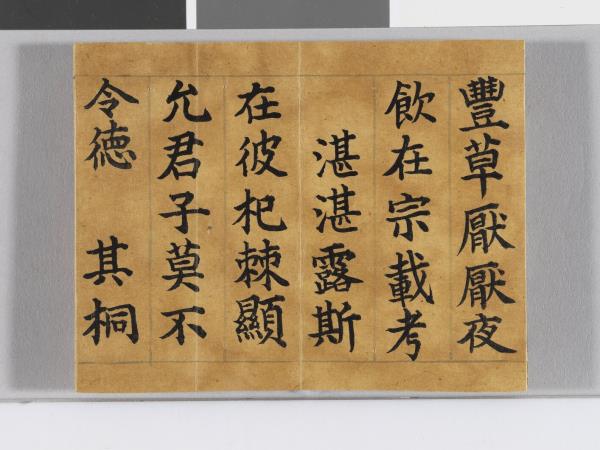 豐草厭厭夜
飲在宗載考
湛湛露斯
在彼杞棘顯
允君子莫不
令德　其桐